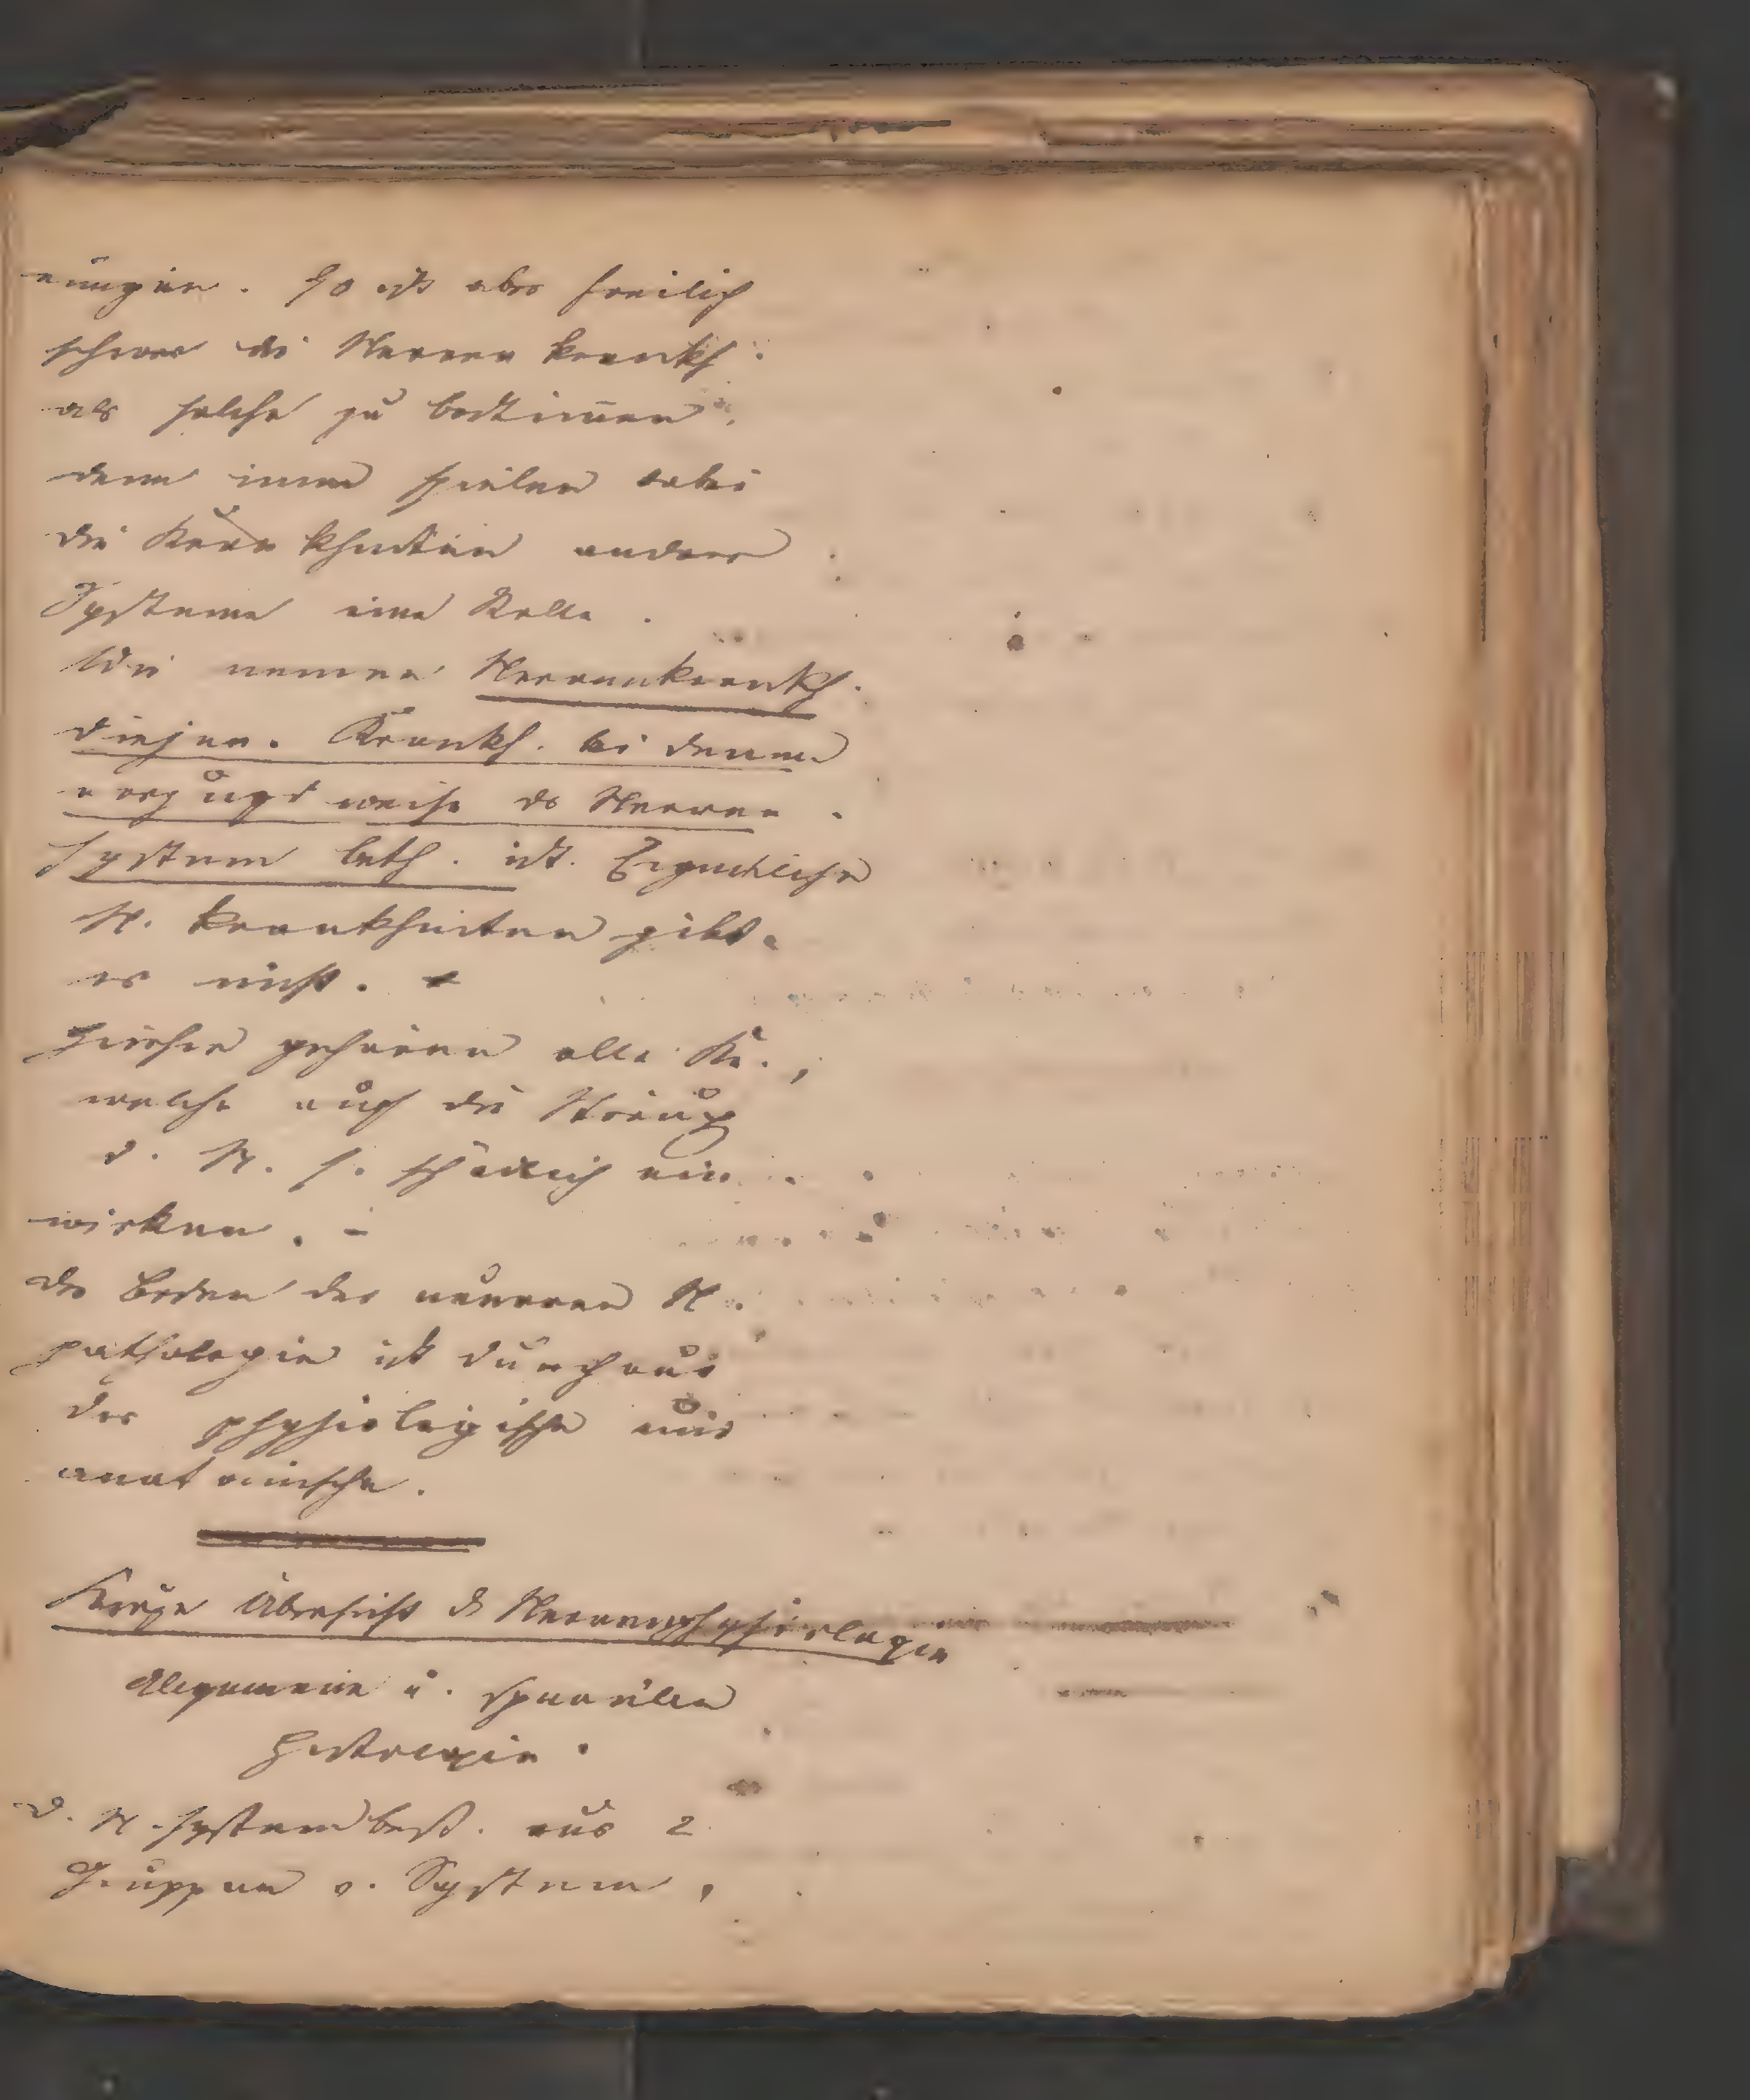 nungen. So ist aber freilich
schwer die Nerven krankh.
als solche zu bestimmen,
denn immer spielen dabei
die Krankheiten anderer
Systeme eine Rolle.
Wir nennen Nervenkrankh.
diejen. Krankh. bei denen
vorzugsweise das Nerven
system beth. ist. Eigentliche
N. krankheiten gibt
es nicht.
Hieher gehören alle Kr.,
welche auf die
d. N. s. schädlich ein
wirken. -
der Boden der neueren N.
pathologie ist durchaus
der physiologische und
anatomische.
Kurze Übersicht d. Nervenphysiologie
Allgemeine u. specielle
Histologie.
d. N. system best. aus 2
Gruppen v. System,